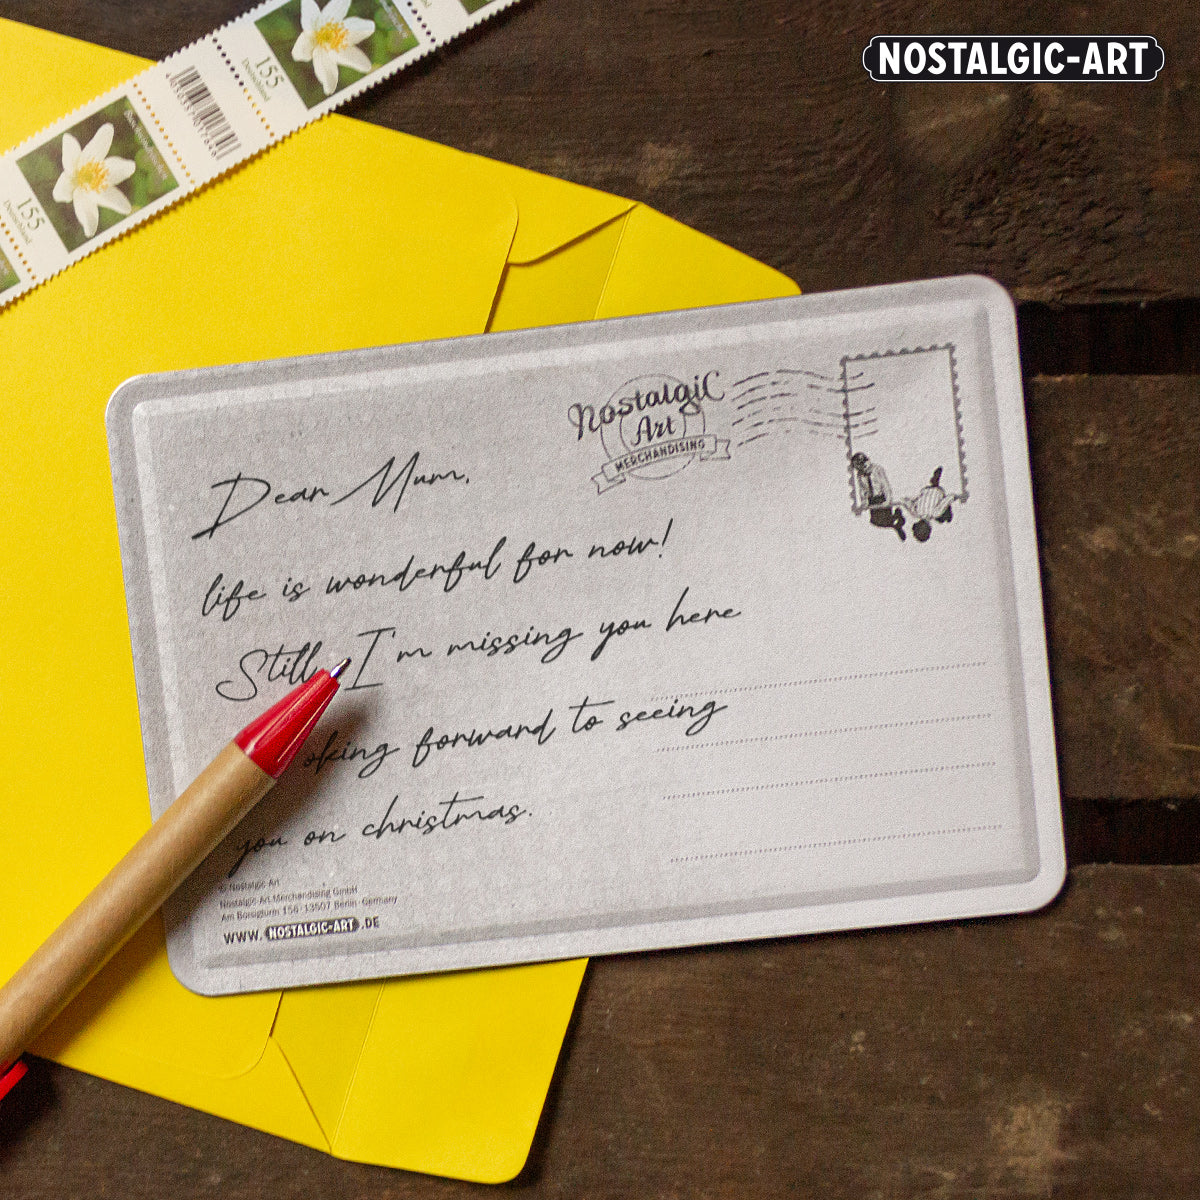 NOSTALGIC-ART
155
Deutschland
155
Deutschland
Nostalgic
Art
MERCHANDISING
Dear Mum,
life is wonderful for now!
Still I'm missing you here
oking forward to seeing
you on christmas.
© Nostalgic Art
Nostalgic-Art Merchandising GmbH
Am Borsigturm 156 · 13507 Berlin · Germany
WWW. NOSTALGIC-ART .DE